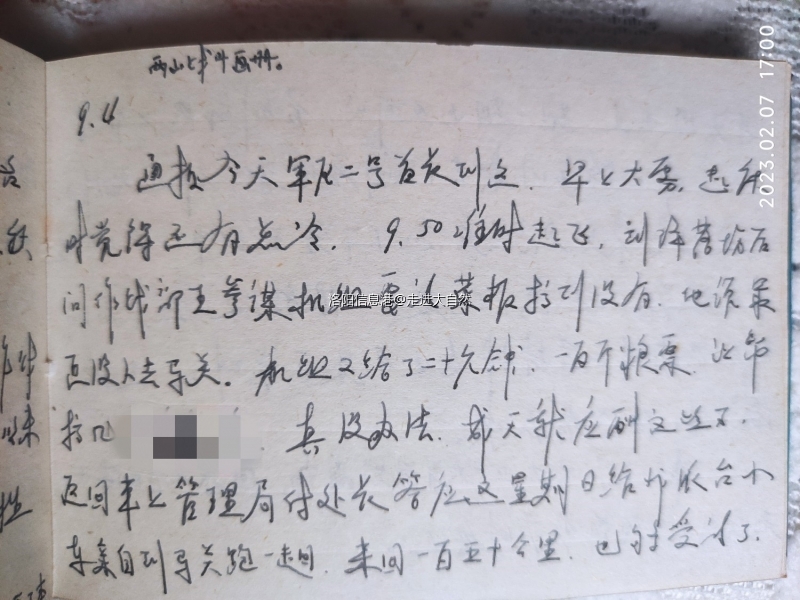 两山战斗画册。
9.4
通报今天军区二号首长到这. 早上大雾, 起床
时觉得还有点冷. 9.50准时起飞, 到泽营场后
问作战部王参谋机组要的菜板搞到没有. 他说景
区没人去导关。机组又给了二十元钱. 一百斤粮票, 让帮
搞几 真没办法. 成天就应酬这些了.
返回车上管理局付处长答应这星期日给抽派台小
车亲自到导关跑一走回. 来回一百五十公里. 也够受的了.
洛阳信息港@走进大自然
2023.02.07 17:00